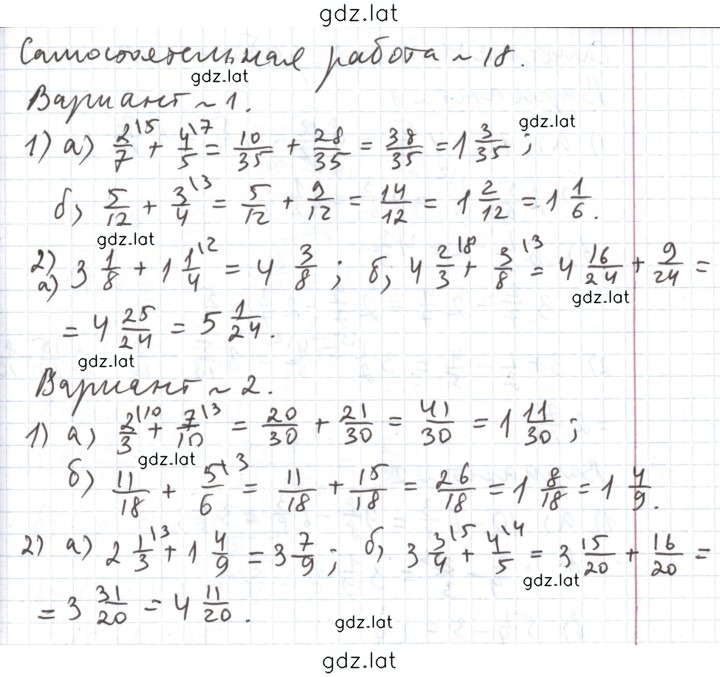 gdz.lat
Самостоятельная работа ~ 18.
gdz.lat
Вариант ~ 1.
gdz.lat
1) а) 2/7 \5 + 4/5 \7 = 10/35 + 28/35 = 38/35 = 1 3/35 ;
б) 5/12 + 3/4 \3 = 5/12 + 9/12 = 14/12 = 1 2/12 = 1 1/6 .
gdz.lat
2) а) 3 1/8 + 1 1/4 \2 = 4 3/8 ; б) 4 2/3 \8 + 3/8 \3 = 4 16/24 + 9/24 =
gdz.lat
= 4 25/24 = 5 1/24 .
gdz.lat
Вариант ~ 2.
1) а) 2/3 \10 + 7/10 \3 = 20/30 + 21/30 = 41/30 = 1 11/30 ;
gdz.lat
б) 11/18 + 5/6 \3 = 11/18 + 15/18 = 26/18 = 1 8/18 = 1 4/9 .
2) а) 2 1/3 \3 + 1 4/9 = 3 7/9 ; б) 3 3/4 \5 + 4/5 \4 = 3 15/20 + 16/20 =
gdz.lat
= 3 31/20 = 4 11/20 .
gdz.lat
gdz.lat